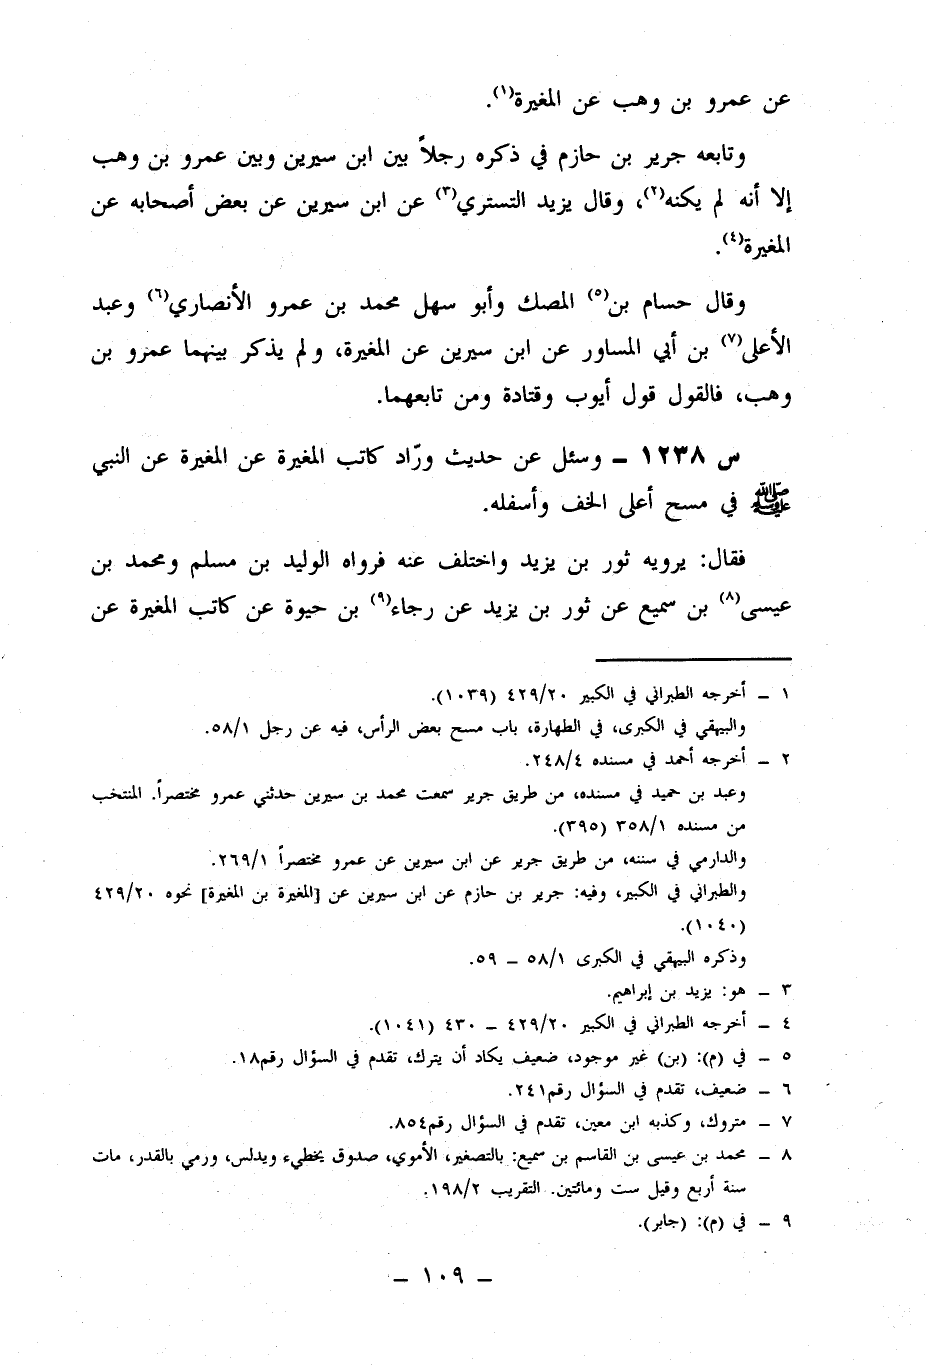 عن عمرو بن وهب عن المغيرة(١).
وتابعه جرير بن حازم في ذكره رجلاً بين ابن سيرين وبين عمرو بن وهب
إلا أنه لم يكنه(٢)، وقال يزيد التستري(٣) عن ابن سيرين عن بعض أصحابه عن
المغيرة(٤).
وقال حسام بن(٥) المصك وأبو سهل محمد بن عمرو الأنصاري(٦) وعبد
الأعلى(٧) بن أبي المساور عن ابن سيرين عن المغيرة، ولم يذكر بينهما عمرو بن
وهب، فالقول قول أيوب وقتادة ومن تابعهما.
س ١٢٣٨ ـ وسئل عن حديث ورّاد كاتب المغيرة عن المغيرة عن النبي
ﷺ في مسح أعلى الخف وأسفله.
فقال: يرويه ثور بن يزيد واختلف عنه فرواه الوليد بن مسلم ومحمد بن
عيسى(٨) بن سميع عن ثور بن يزيد عن رجاء(٩) بن حيوة عن كاتب المغيرة عن
١ ـ أخرجه الطبراني في الكبير ٤٢٩/٢٠ (١٠٣٩).
والبيهقي في الكبرى، في الطهارة، باب مسح بعض الرأس، فيه عن رجل ٥٨/١.
٢ ـ أخرجه أحمد في مسنده ٢٤٨/٤.
وعبد بن حميد في مسنده، من طريق جرير سمعت محمد بن سيرين حدثني عمرو مختصراً. المنتخب
من مسنده ٣٥٨/١ (٣٩٥).
والدارمي في سننه، من طريق جرير عن ابن سيرين عن عمرو مختصراً ٢٦٩/١.
والطبراني في الكبير، وفيه: جرير بن حازم عن ابن سيرين عن [المغيرة بن المغيرة] نحوه ٤٢٩/٢٠
(١٠٤٠).
وذكره البيهقي في الكبرى ٥٨/١ ـ ٥٩.
٣ ـ هو: يزيد بن إبراهيم.
٤ ـ أخرجه الطبراني في الكبير ٤٢٩/٢٠ ـ ٤٣٠ (١٠٤١).
٥ ـ في (م): (بن) غير موجود، ضعيف يكاد أن يترك، تقدم في السؤال رقم١٨.
٦ ـ ضعيف، تقدم في السؤال رقم٢٤١.
٧ ـ متروك، وكذبه ابن معين، تقدم في السؤال رقم٨٥٤.
٨ ـ محمد بن عيسى بن القاسم بن سميع: بالتصغير، الأموي، صدوق يخطيء ويدلس، ورمي بالقدر، مات
سنة أربع وقيل ست ومائتين. التقريب ١٩٨/٢.
٩ ـ في (م): (جابر).
ـ ١٠٩ ـ